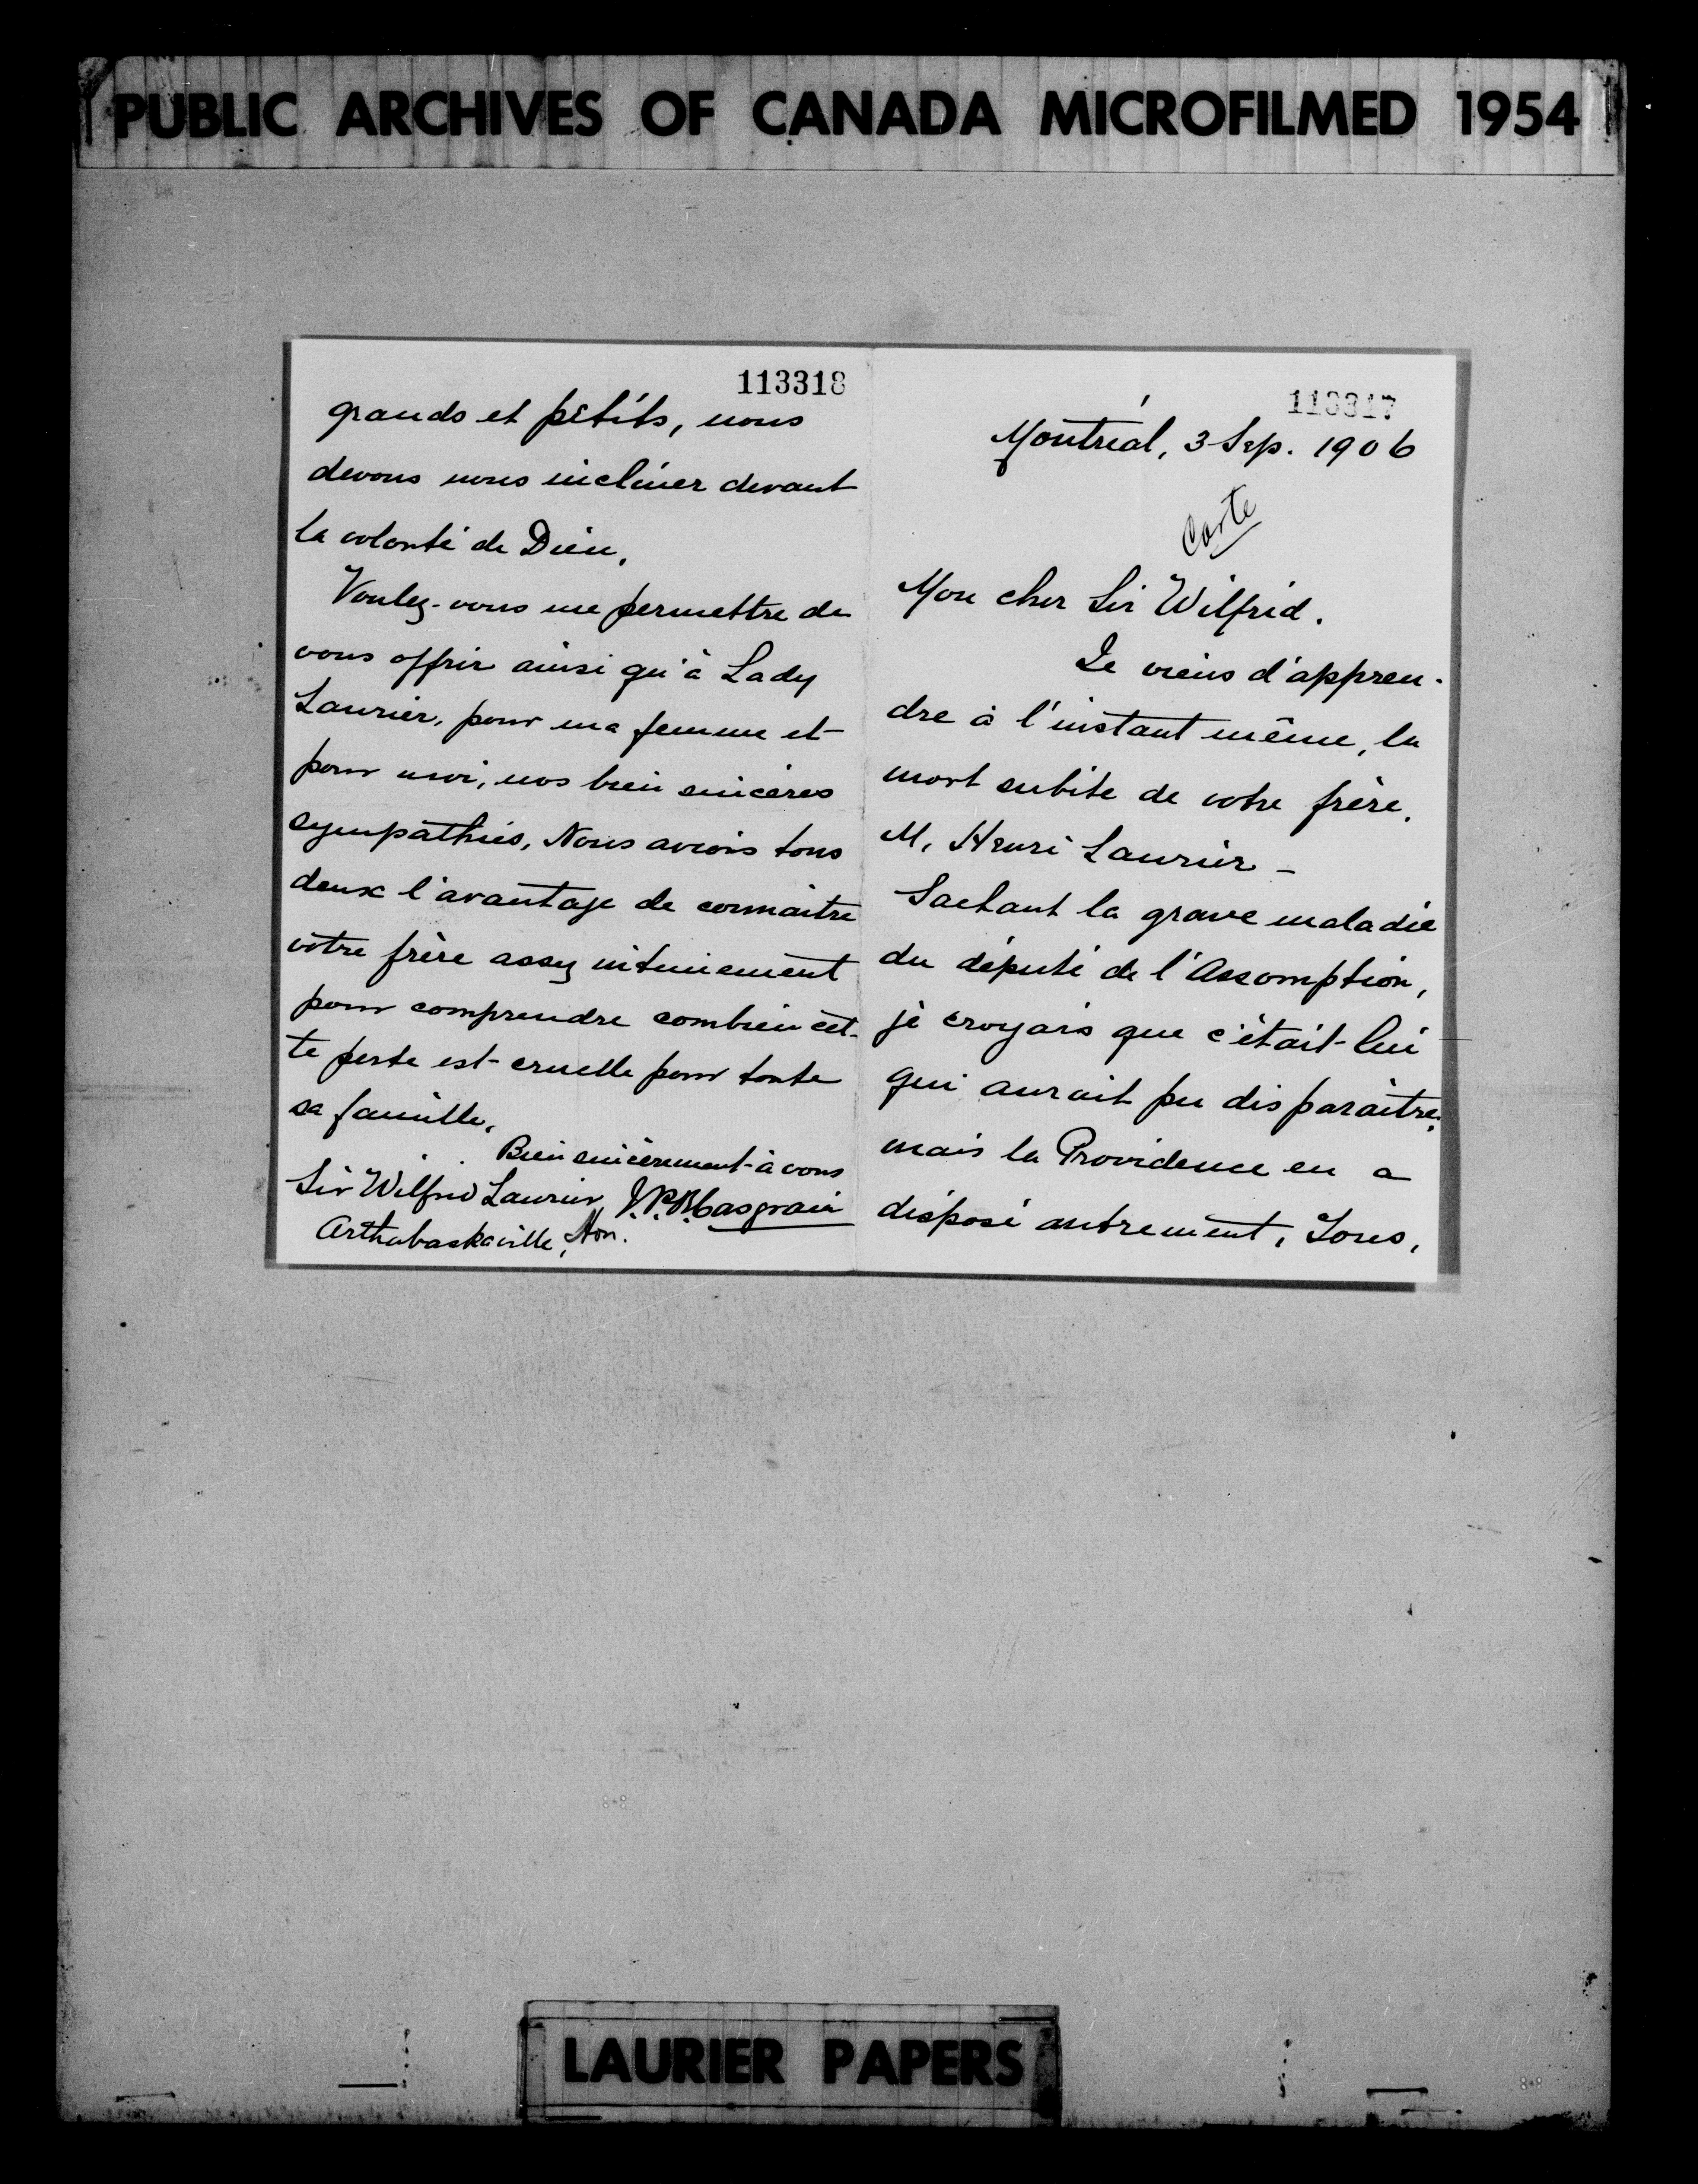 PUBLIC ARCHIVES OF CANADA MICROFILMED 1954
113317
Montréal, 3 Sep. 1906
Carte
Mon cher Sir Wilfrid.
Je viens d'appren-
dre à l'instant même, la
mort subite de votre frère.
M. Henri Laurier -
Sachant la grave maladie
du député de l'Assomption,
je croyais que c'était lui
qui aurait pu disparaître;
mais la Providence en a
disposé autrement. Tous,
113318
grands et petits, nous
devons nous incliner devant
la volonté de Dieu.
Voulez-vous me permettre de
vous offrir ainsi qu'à Lady
Laurier, pour ma femme et
pour moi, nos bien sincères
sympathies, Nous avions tous
deux l'avantage de connaitre
votre frère assez intimement
pour comprendre combien cet-
te perte est cruelle pour toute
sa famille.
Bien sincèrement à vous
J.P.B. Casgrain
Sir Wilfrid Laurier,
Arthabaskaville,
LAURIER PAPERS